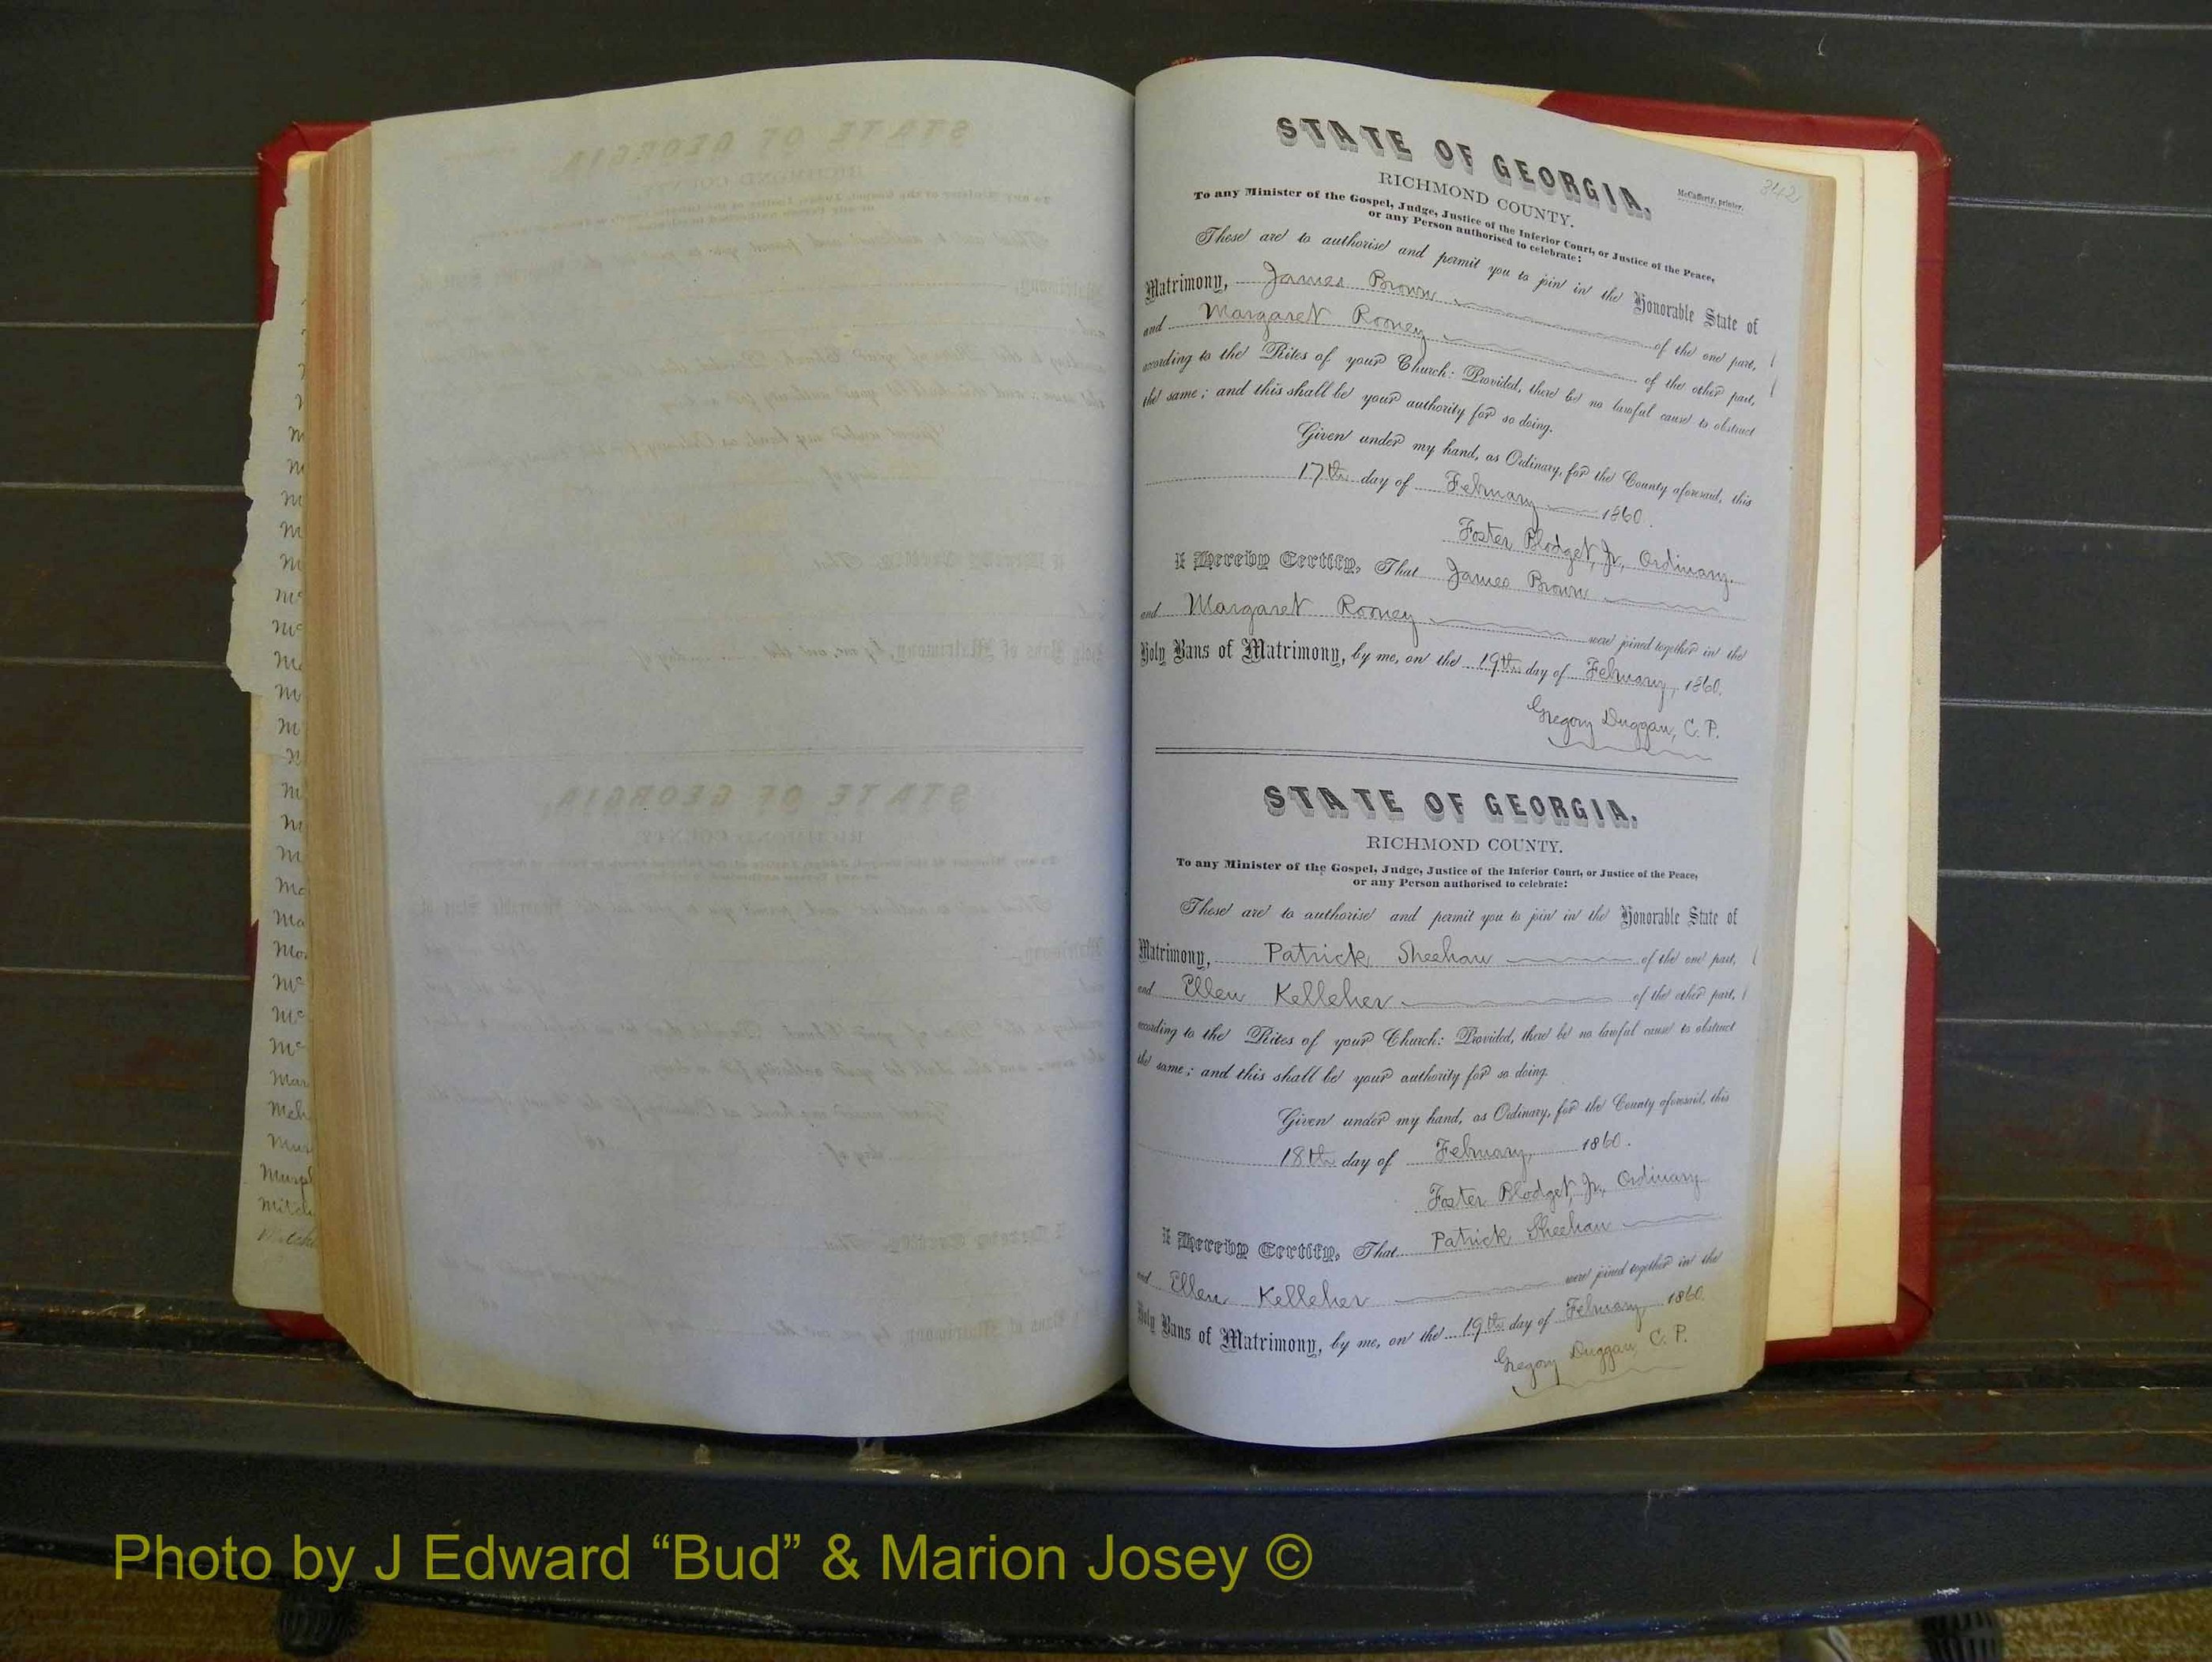 M
M
M
M
M
Mc
Mc
Mc
M
M
M
M
M
Ma
Ma
Mo
Mc
Mc
Mc
Mar
Meh
Mur
Murp
Mitch
STATE OF GEORGIA.
342
RICHMOND COUNTY.
McCafferty, printer.
To any Minister of the Gospel, Judge, Justice of the Inferior Court, or Justice of the Peace,
or any Person authorised to celebrate:
These are to authorise and permit you to join in the Honorable State of
Matrimony, James Brown of the one part,
and Margaret Rooney of the other part,
according to the Rites of your Church: Provided, there be no lawful cause to obstruct
the same; and this shall be your authority for so doing.
Given under my hand, as Ordinary, for the County aforesaid, this
17th day of February 1860.
Foster Blodget, Jr., Ordinary.
I Hereby Certify, That James Brown
and Margaret Rooney were joined together in the
Holy Bans of Matrimony, by me, on the 19th day of February, 1860.
Gregory Duggan, C. P.
STATE OF GEORGIA.
RICHMOND COUNTY.
To any Minister of the Gospel, Judge, Justice of the Inferior Court, or Justice of the Peace,
or any Person authorised to celebrate:
These are to authorise and permit you to join in the Honorable State of
Matrimony, Patrick Sheehan of the one part,
and Ellen Kelleher of the other part,
according to the Rites of your Church: Provided, there be no lawful cause to obstruct
the same; and this shall be your authority for so doing.
Given under my hand, as Ordinary, for the County aforesaid, this
18th day of February, 1860.
Foster Blodget, Jr., Ordinary.
I Hereby Certify, That Patrick Sheehan
and Ellen Kelleher were joined together in the
Holy Bans of Matrimony, by me, on the 19th day of February, 1860.
Gregory Duggan, C. P.
Photo by J Edward “Bud” & Marion Josey ©